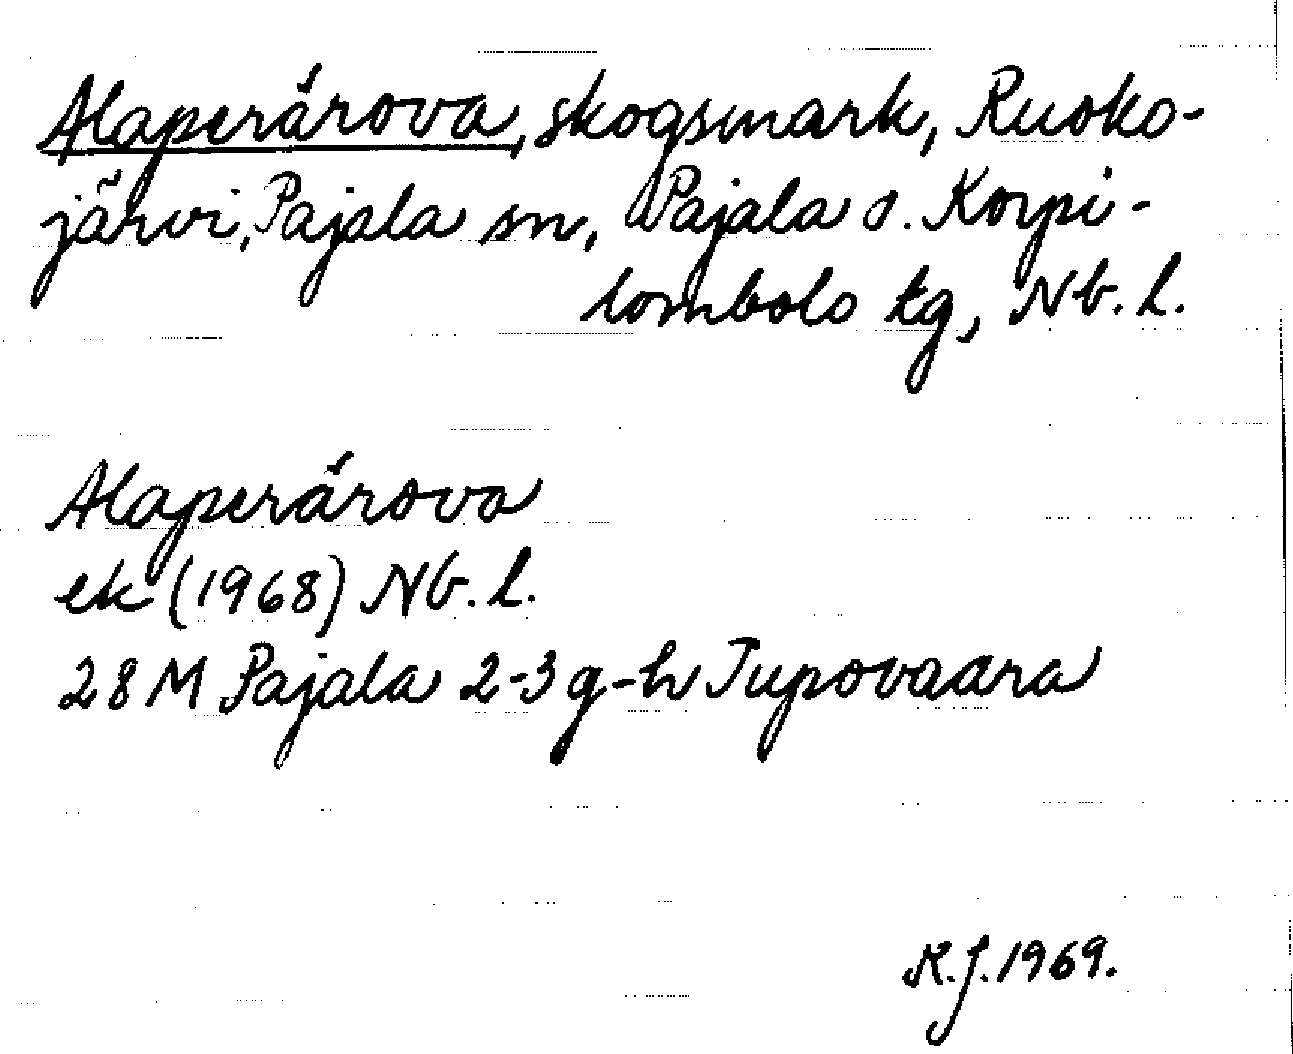 Alaperärova, skogsmark, Ruoko-
järvi, Pajala sn, Pajala o. Korpi-
lombolo tg, Nb. l.
Alaperärova
ek (1968) Nb. l.
28 M Pajala 2-3 g-h Jupovaara
K.J. 1969.